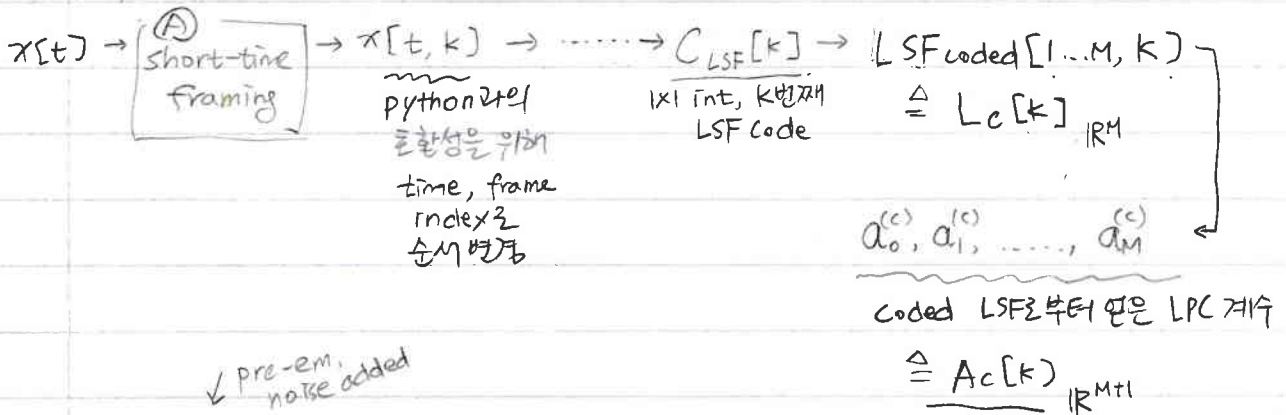 x[t] → Ⓐ short-time framing → x[t, k] → ······ → C_LSF[k] → LSFcoded[1...M, k]
python과의
호환성을 위해
time, frame
index로
순서 변경
1×1 int, k번째
LSF code
≜ Lc[k] ℝᴹ
a₀⁽ᶜ⁾, a₁⁽ᶜ⁾, ......, a_M⁽ᶜ⁾
coded LSF로부터 얻은 LPC 계수
≜ Ac[k] ℝᴹ⁺¹
↓ pre-em.
noise added